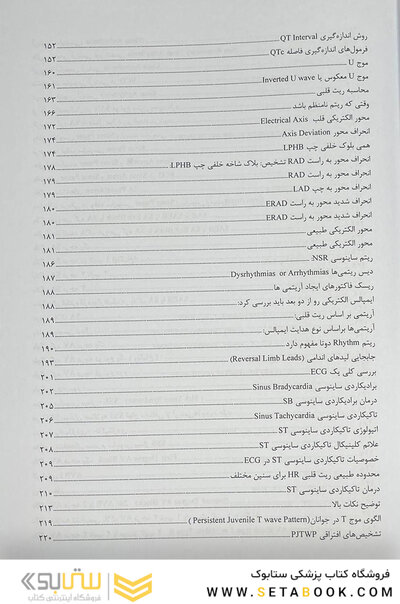 روش اندازه‌گیری QT Interval ۱۵۲
فرمول‌های اندازه‌گیری فاصله QTc ۱۵۲
موج U ۱۶۰
موج U معکوس یا Inverted U wave ۱۶۱
محاسبه ریت قلبی ۱۶۳
وقتی که ریتم نامنظم باشد ۱۶۶
محور الکتریکی قلب Electrical Axis ۱۷۲
انحراف محور Axis Deviation ۱۷۴
همی بلوک خلفی چپ LPHB ۱۷۴
انحراف محور به راست RAD تشخیص: بلاک شاخه خلفی چپ LPHB: ۱۷۸
انحراف محور به راست RAD: ۱۷۹
انحراف محور به چپ LAD ۱۷۹
انحراف شدید محور به راست ERAD ۱۸۰
انحراف شدید محور به راست ERAD ۱۸۰
محور الکتریکی طبیعی ۱۸۱
محور الکتریکی طبیعی ۱۸۱
ریتم ساینوسی NSR: ۱۸۶
دیس ریتمی‌ها Dysrhythmias or Arrhythmias ۱۸۷
ریسک فاکتورهای ایجاد آریتمی ها ۱۸۸
ایمپالس الکتریکی رو از دو بعد باید بررسی کرد: ۱۸۸
آریتمی بر اساس ریت قلبی: ۱۸۹
آریتمی‌ها براساس نوع هدایت ایمپالس: ۱۸۹
ریتم Rhythm دوتا مفهوم دارد ۱۹۰
جابجایی لیدهای اندامی (Reversal Limb Leads) ۱۹۳
بررسی کلی یک ECG ۲۰۱
برادیکاردی ساینوسی Sinus Bradycardia ۲۰۲
درمان برادیکاردی ساینوسی SB ۲۰۵
تاکیکاردی ساینوسی Sinus Tachycardia ۲۰۶
اتیولوژی تاکیکاردی ساینوسی ST ۲۰۷
علائم کلینیکال تاکیکاردی ساینوسی ST ۲۰۸
خصوصیات تاکیکاردی ساینوسی ST در ECG ۲۰۹
محدوده طبیعی ریت قلبی HR برای سنین مختلف ۲۰۹
درمان تاکیکاردی ساینوسی ST ۲۱۰
توضیح نکات بالا: ۲۱۳
الگوی موج T در جوانان(Persistent Juvenile T wave Pattern ) ۲۱۹
تشخیص‌های افتراقی PJTWP ۲۲۰
ستابوک
فروشگاه اینترنتی کتاب
فروشگاه کتاب پزشکی ستابوک
WWW.SETABOOK.COM